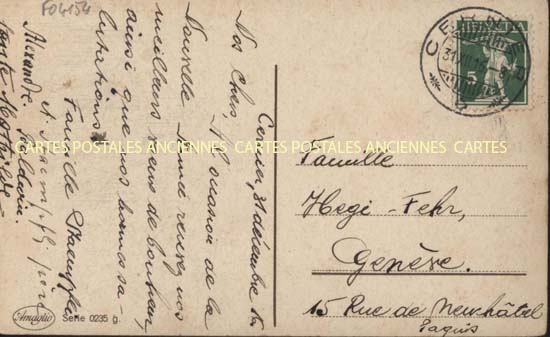 F04154
Cernier, 31 décembre
Nos Chers, A l'occasion de la
Nouvelle Année recevez nos
meilleurs vœux de bonheur,
ainsi que nos bonnes sa-
lutations
Famille Staempfli
Alexandre.
CARTES POSTALES ANCIENNES CARTES POSTALES ANCIENNES CARTES
HELVETIA
5
CERNIER
Famille
Hegi-Fehr,
Genève.
15 Rue de Neuchâtel
Paquis
Amaglio
Serie 0235 g.